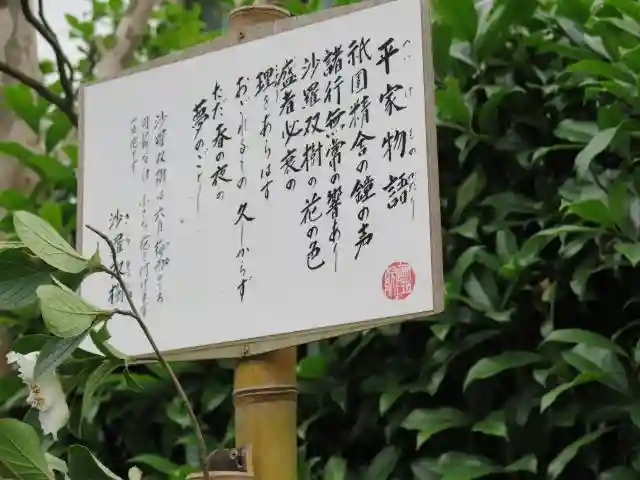 平家物語
へいけものがたり
祇園精舎の鐘の声
諸行無常の響あり
沙羅双樹の花の色
盛者必衰の
理をあらはす
おごれるもの久しからず
ただ春の夜の
夢のごとし
沙羅双樹は六月
沙羅双樹